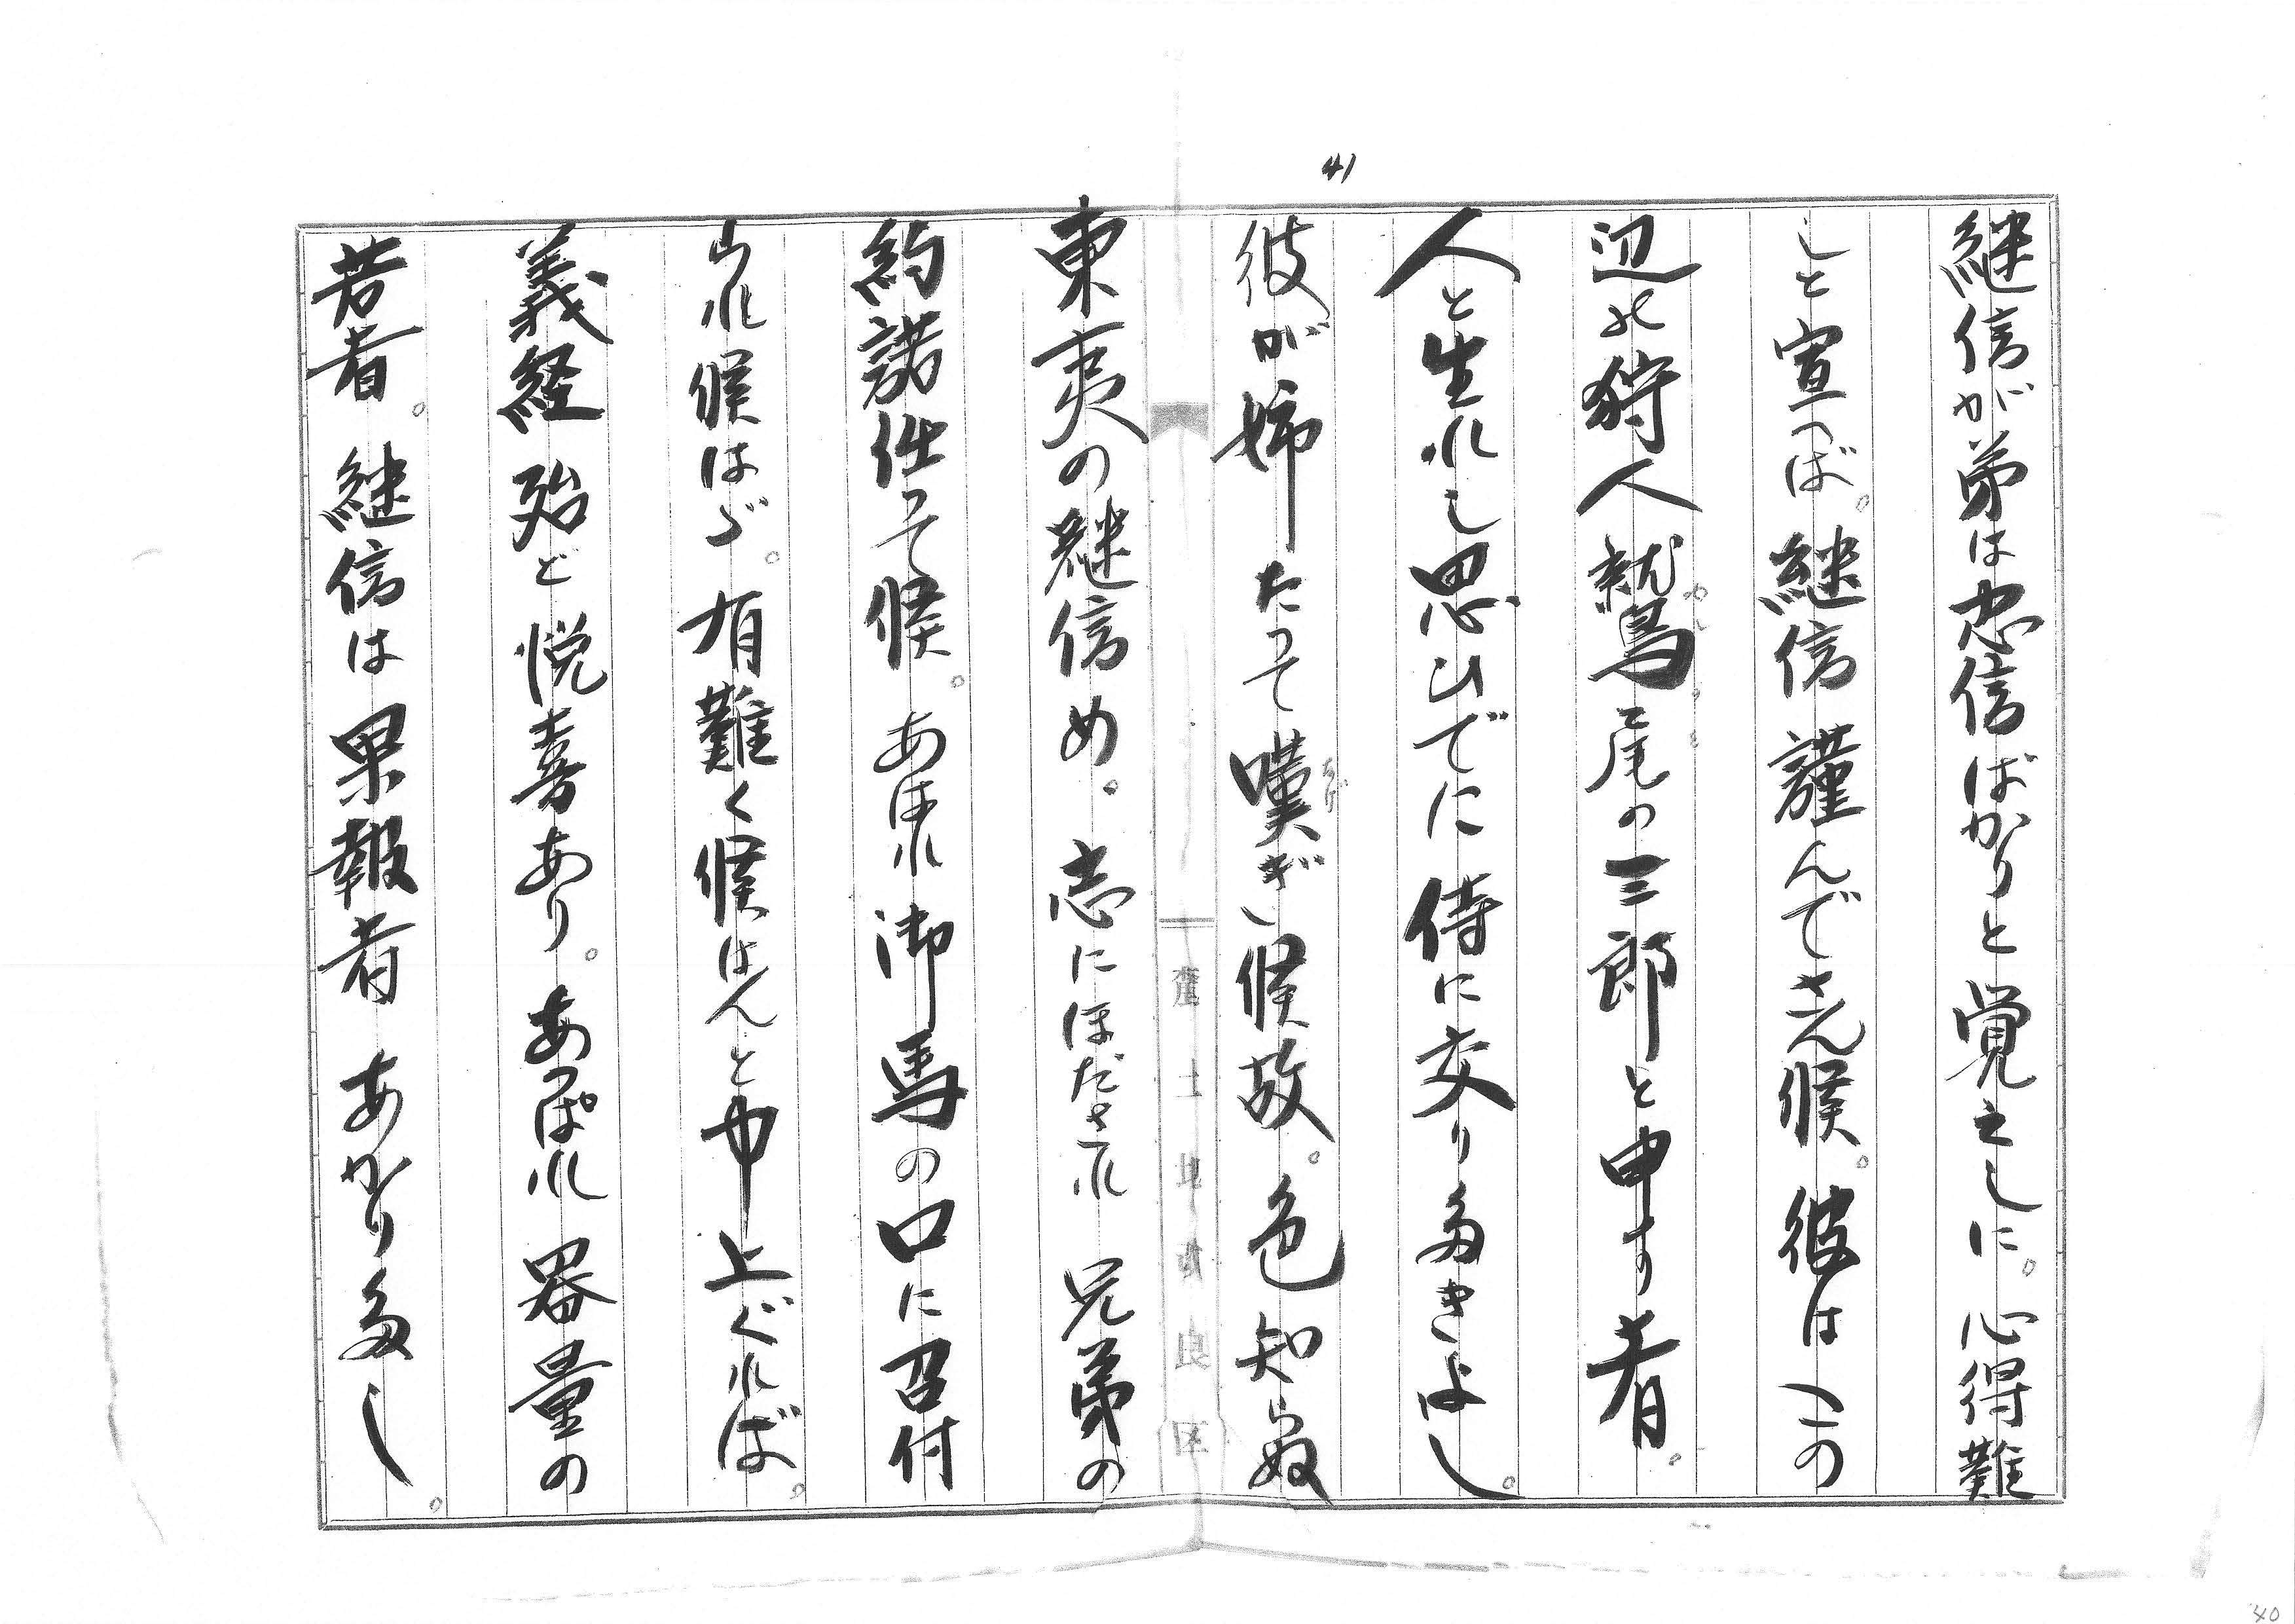 41
継信が弟は忠信ばかりと覚えしに。心得難
しと宣へば。継信謹んでさん候。彼はこの
辺の狩人鷲尾の三郎と申す者。
人と生れし思ひでに侍に交りたきよし。
彼が姉たって嘆ぎ候故。色知らぬ
東夷の継信め。志にほだされ兄弟の
約諾仕って候。あはれ御馬の口に召付
られ候はゞ。有難く候はんと申上ぐれば。
義経殆ど悦喜あり。あっぱれ器量の
若者。継信は果報者あやかりたし。
40